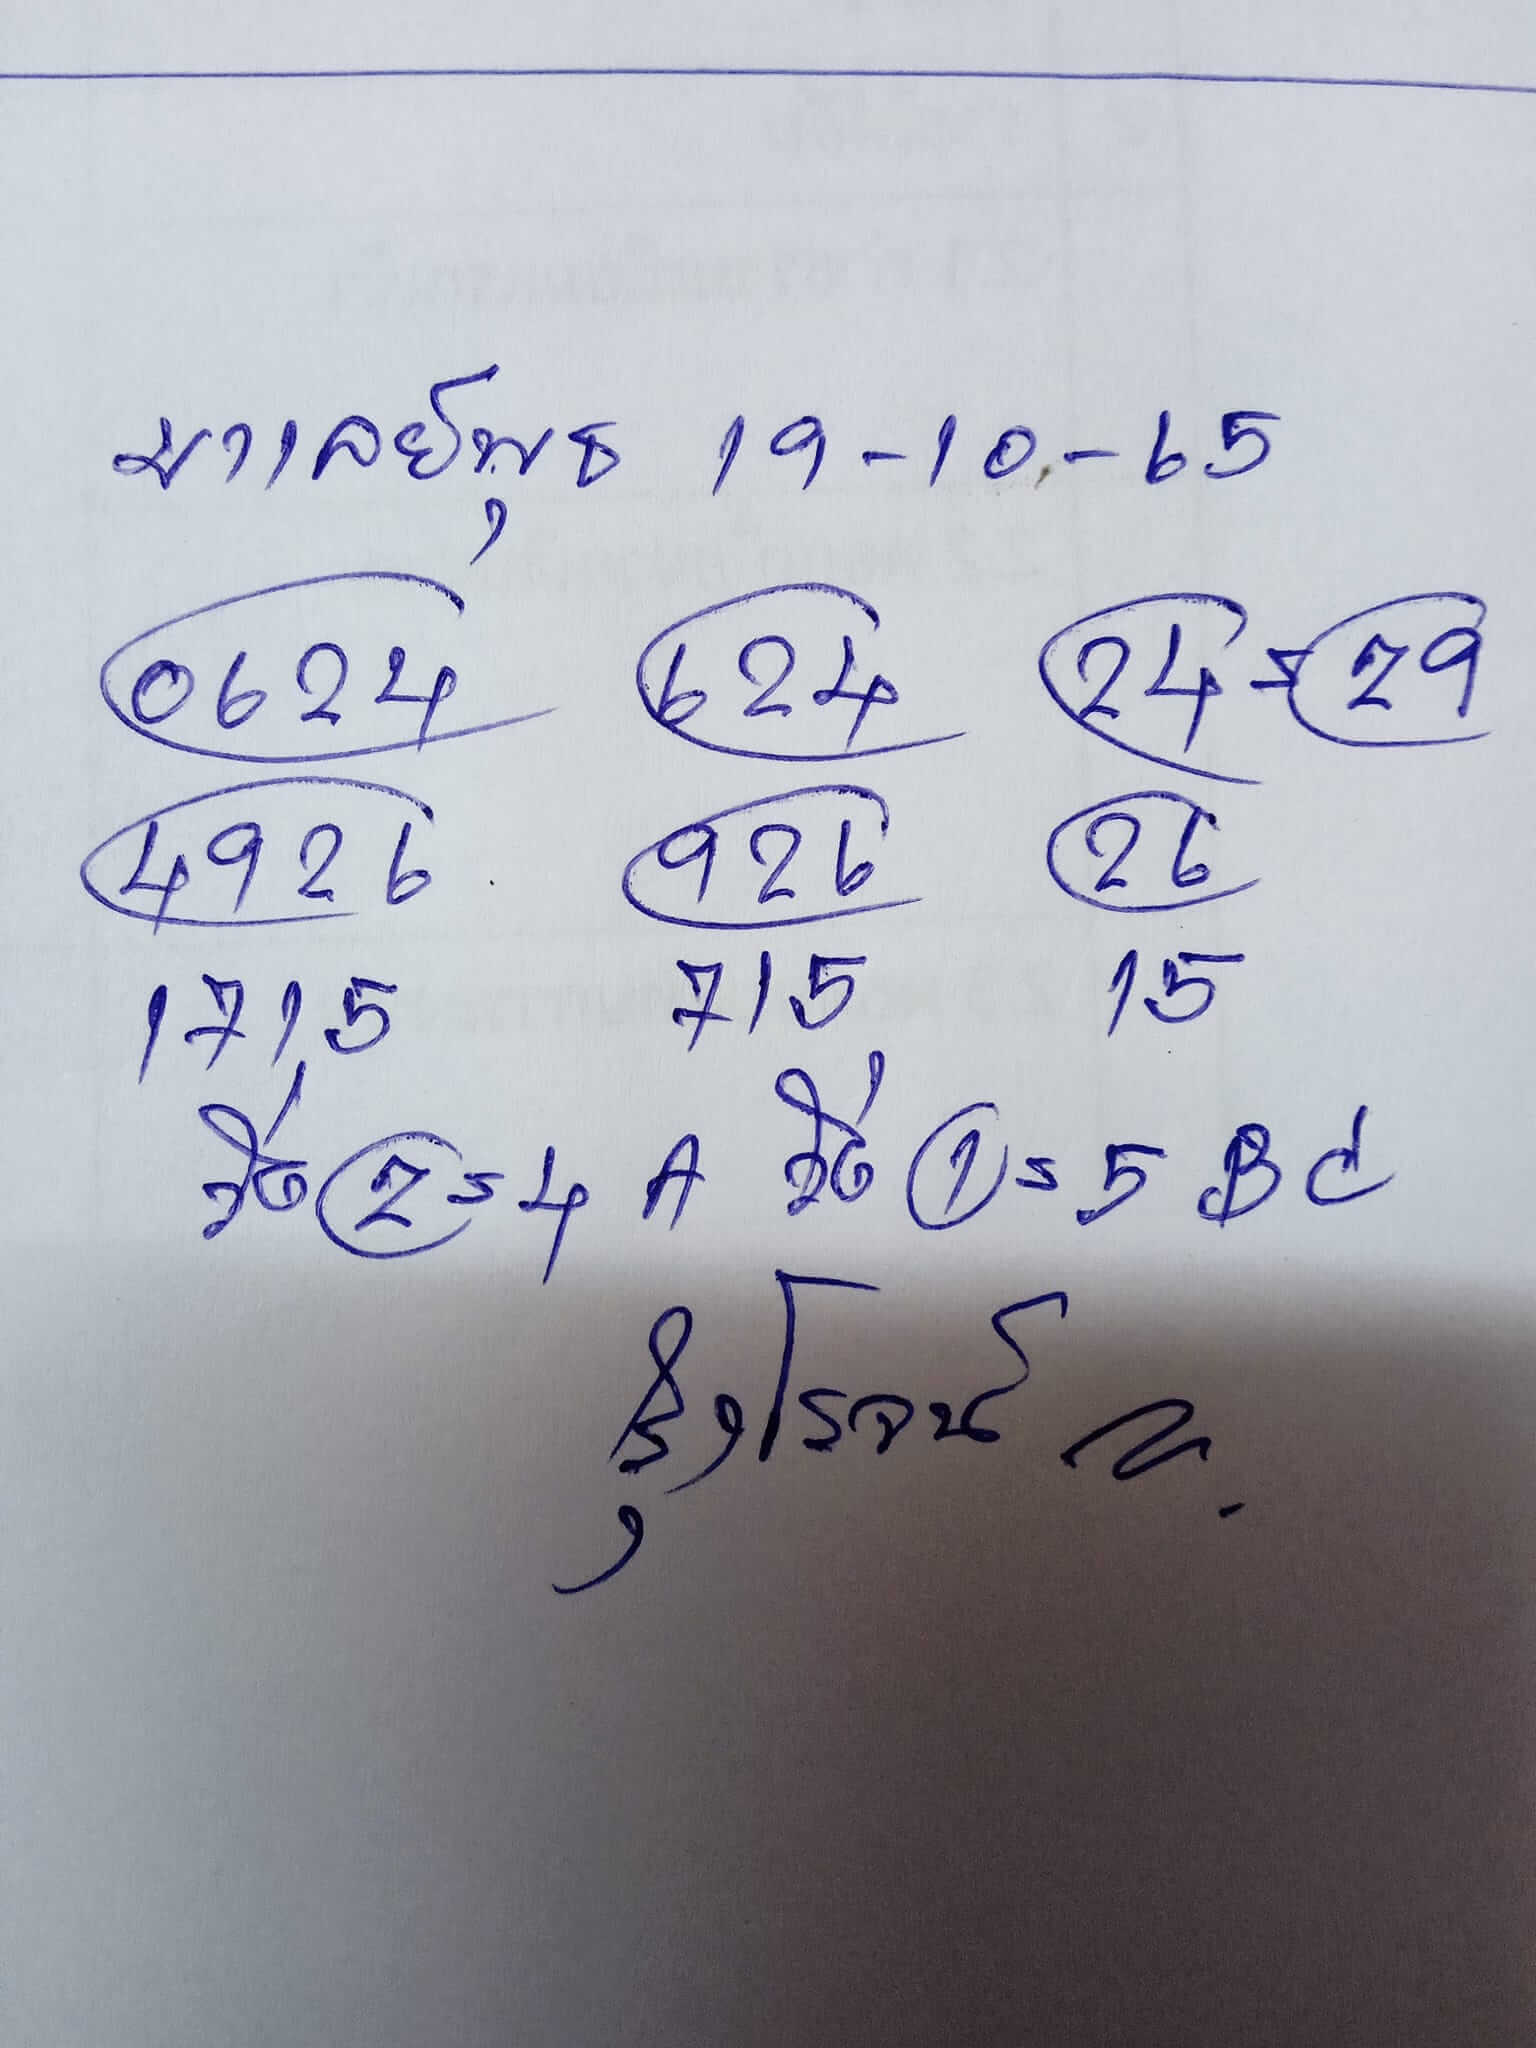 มาเลย์พุธ 19-10-65
0624 624 24=29
4926 926 26
1715 715 15
วิ่ง 2=4 A วิ่ง 1=5 B C
รุ่งโรจน์